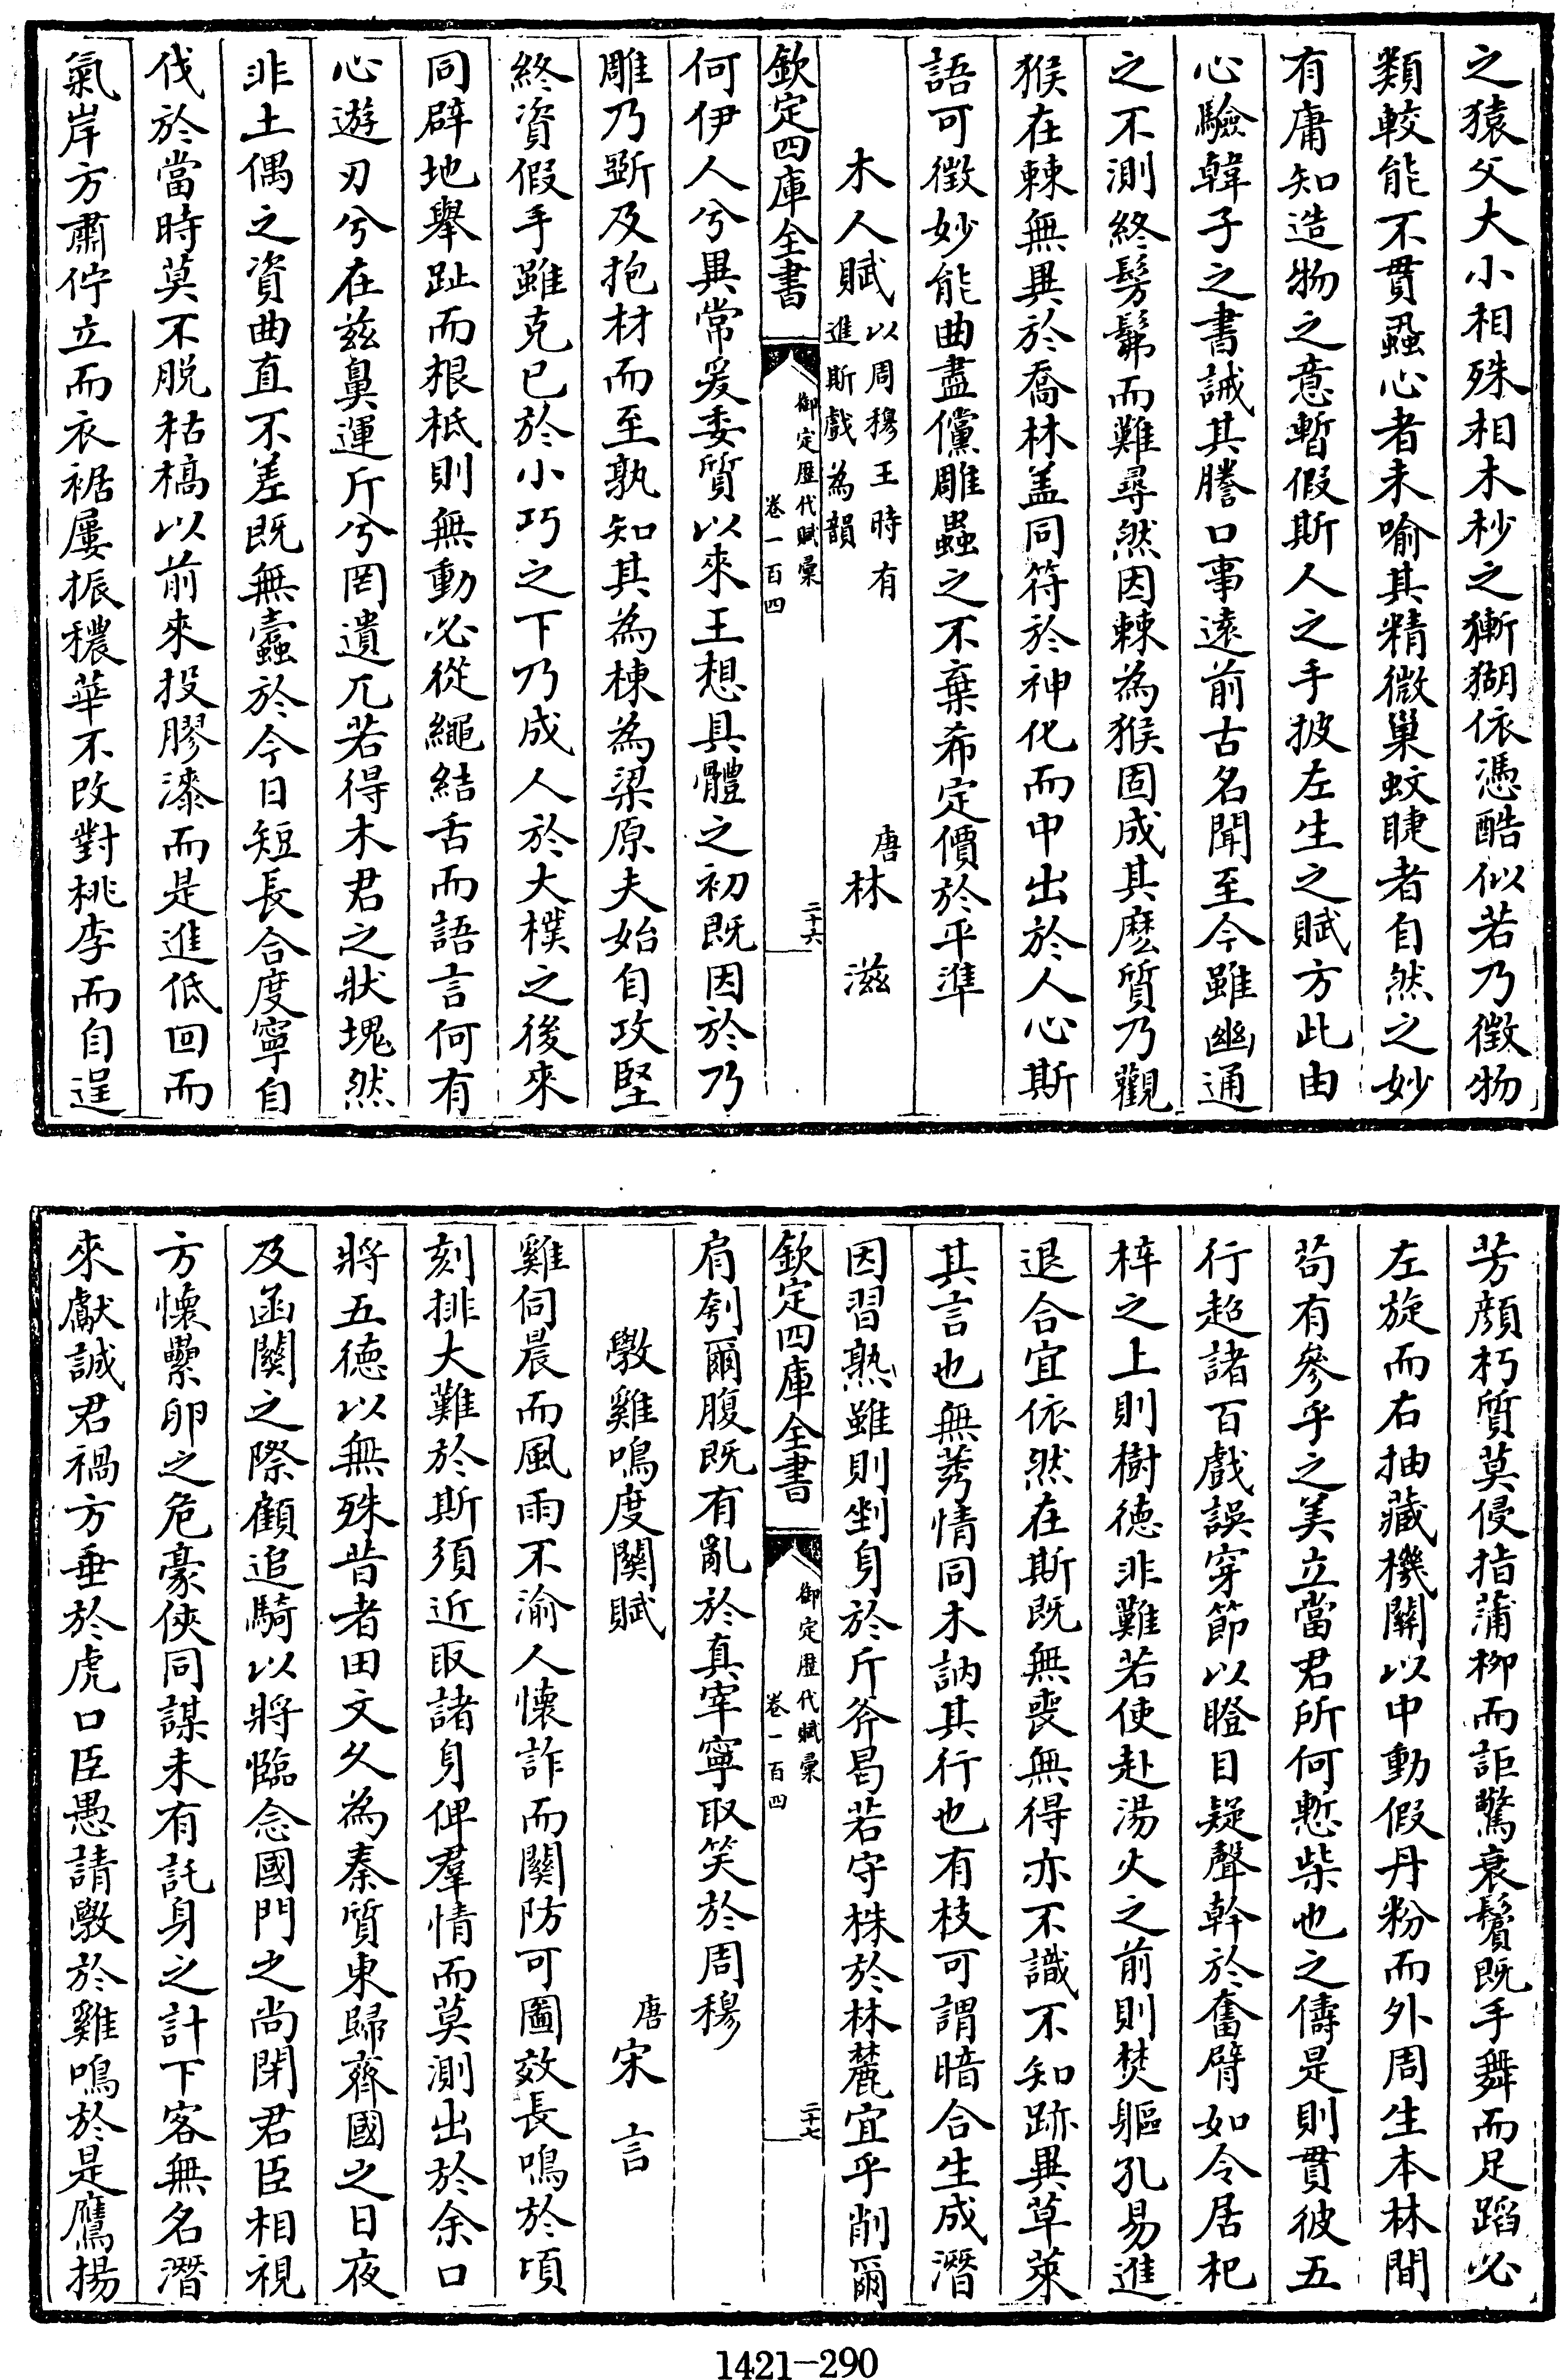 之猿父大小相殊相木杪之獑猢依憑酷似若乃徵物
類較能不貫蝨心者未喻其精微巢蚊睫者自然之妙
有庸知造物之意暫假斯人之手披左生之賦方此由
心驗韓子之書誠其謄口事遠前古名聞至今雖幽通
之不測終髣髴而難尋然因棘為猴固成其麽質乃觀
猴在棘無異於喬林盖同符於神化而中出於人心斯
語可徵妙能曲盡儻雕蟲之不棄希定價於平準
木人賦以周穆王時有進斯戲為韻 唐林滋
欽定四庫全書 御定歴代賦彚 卷一百四 二十六
何伊人兮異常爰委質以來王想具體之初既因於乃
雕乃斲及抱材而至孰知其為棟為梁原夫始自攻堅
終資假手雖克已於小巧之下乃成人於大樸之後來
同辟地舉趾而根柢則無動必從繩結舌而語言何有
心遊刃兮在兹鼻運斤兮罔遺兀若得木君之狀塊然
非土偶之資曲直不差既無蠧於今日短長合度寧自
伐於當時莫不脱枯槁以前來投膠漆而是進低回而
氣岸方肅佇立而衣裾屢振穠華不改對桃李而自逞
芳顔朽質莫侵指蒲柳而詎驚衰鬢既手舞而足蹈必
左旋而右抽藏機關以中動假丹粉而外周生本林間
苟有參乎之美立當君所何慙柴也之儔是則貫彼五
行超諸百戲誤穿節以瞪目疑聳幹於奮臂如令居杞
梓之上則樹德非難若使赴湯火之前則焚軀孔易進
退合宜依然在斯既無喪無得亦不識不知跡異草萊
其言也無莠情同木訥其行也有枝可謂暗合生成潛
因習熟雖則剉身於斤斧曷若守株於林麓宜乎削爾
欽定四庫全書 御定歴代賦彚 卷一百四 二十七
肩刳爾腹既有亂於真宰寧取笑於周穆
斆雞鳴度關賦 唐宋言
雞伺晨而風雨不渝人懷詐而關防可圖效長鳴於頃
刻排大難於斯須近取諸身俾羣情而莫測出於余口
將五德以無殊昔者田文久為秦質東歸齊國之日夜
及函關之際顧追騎以將臨念國門之尚閉君臣相視
方懷纍卵之危豪俠同謀未有託身之計下客無名潛
來獻誠君禍方垂於虎口臣愚請斆於雞鳴於是鷹揚
1421-290